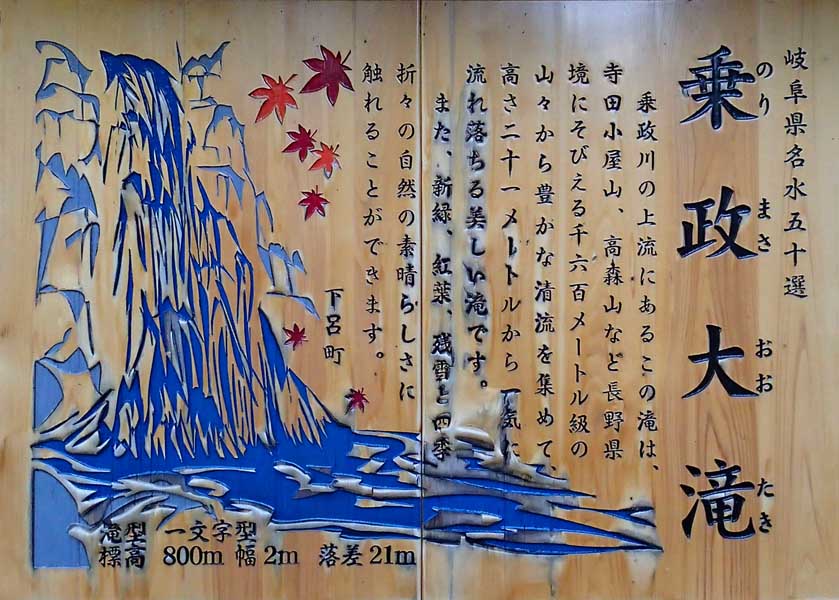 岐阜県名水五十選
乗政大滝
のりまさおおたき
乗政川の上流にあるこの滝は、
寺田小屋山、高森山など長野県
境にそびえる千六百メートル級の
山々から豊かな清流を集めて、
高さ二十一メートルから一気に
流れ落ちる美しい滝です。
また、新緑、紅葉、残雪と四季
折々の自然の素晴らしさに
触れることができます。
下呂町
滝型 一文字型
標高 800m 幅2m 落差21m